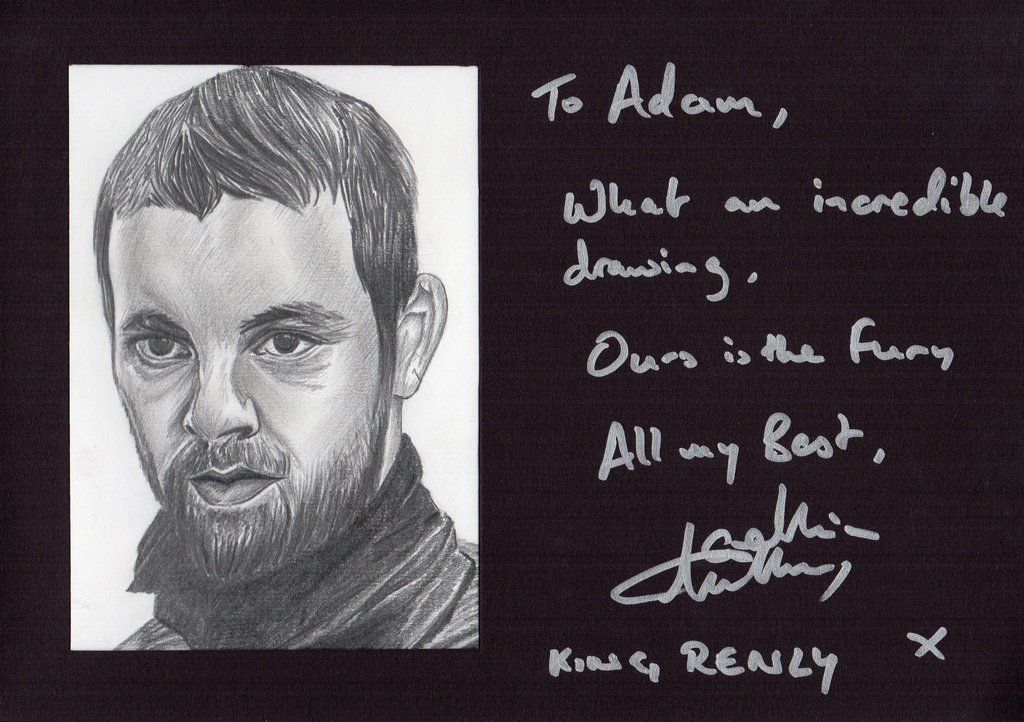 To Adam,
What an incredible
drawing.
Ours is the Fury
All my Best,
KING RENLY X